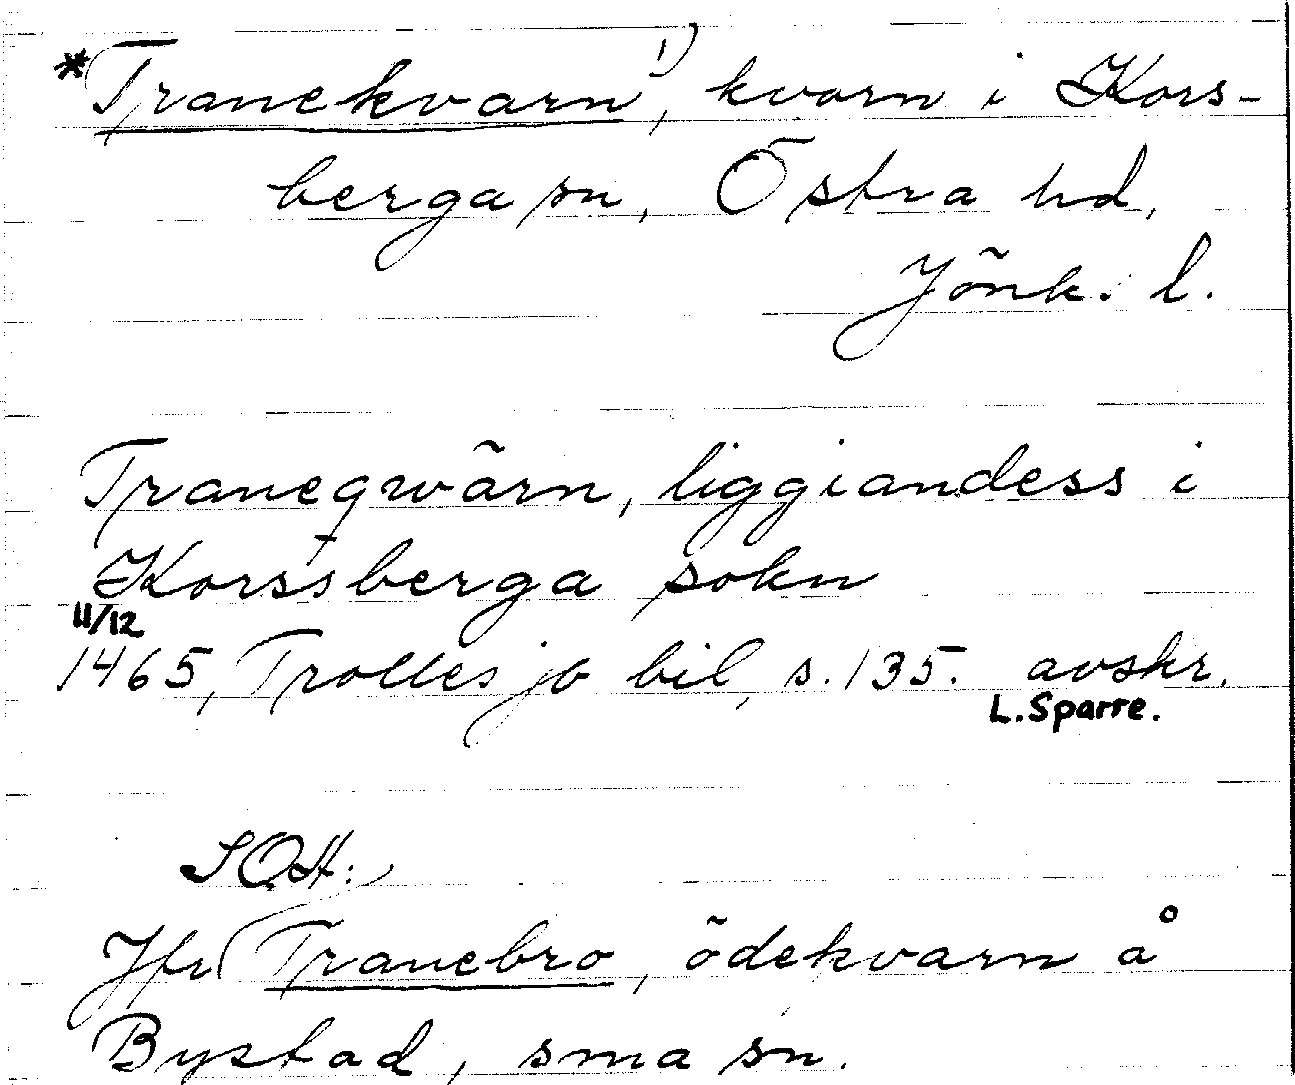 *Tranekvarn¹⁾, kvarn i Kors-
berga sn, Östra hd,
Jönk. l.
Traneqwärn, liggiandess i
Korssberga sokn
11/12
1465, Trolles jb bil, s. 135. avskr.
L. Sparre.
SOH:
Jfr Tranebro, ödekvarn å
Bystad, sma sn.